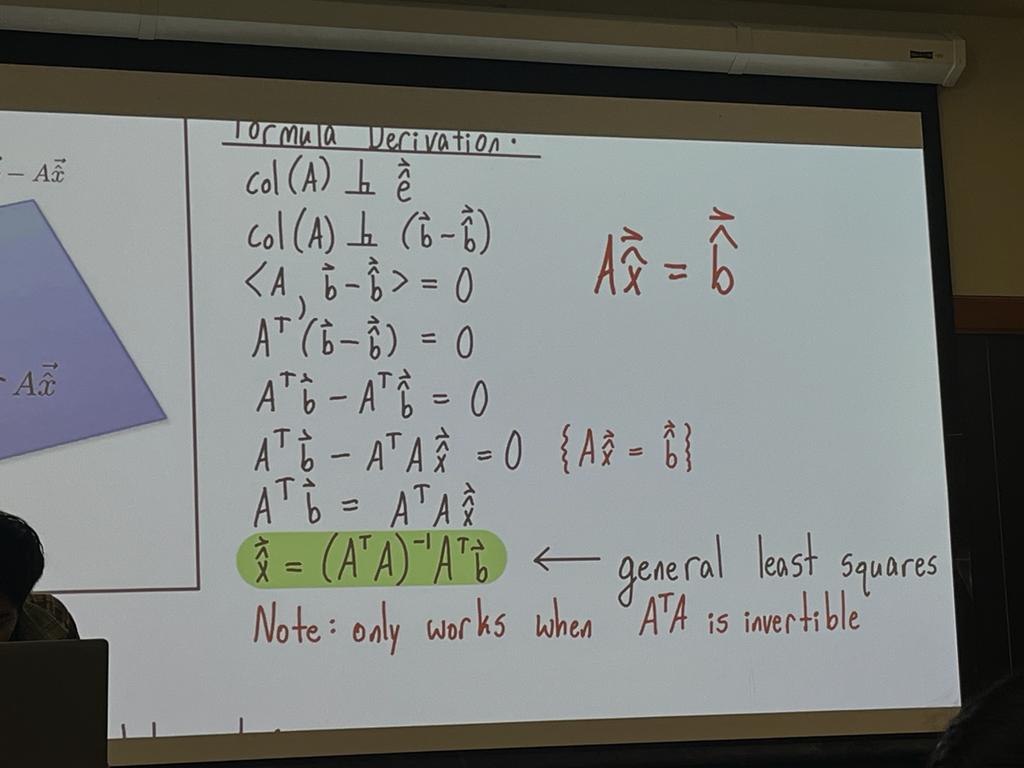 Formula Derivation.
− Ax̂⃗
col(A) ⊥ ê⃗
col(A) ⊥ (b⃗ − b̂⃗)
<A, b⃗ − b̂⃗> = 0
Ax̂⃗ = b̂⃗
Aᵀ(b⃗ − b̂⃗) = 0
Ax̂⃗
Aᵀb⃗ − Aᵀb̂⃗ = 0
Aᵀb⃗ − AᵀAx̂⃗ = 0 {Ax̂⃗ = b̂⃗}
Aᵀb⃗ = AᵀAx̂⃗
x̂⃗ = (AᵀA)⁻¹Aᵀb⃗ ← general least squares
Note: only works when AᵀA is invertible